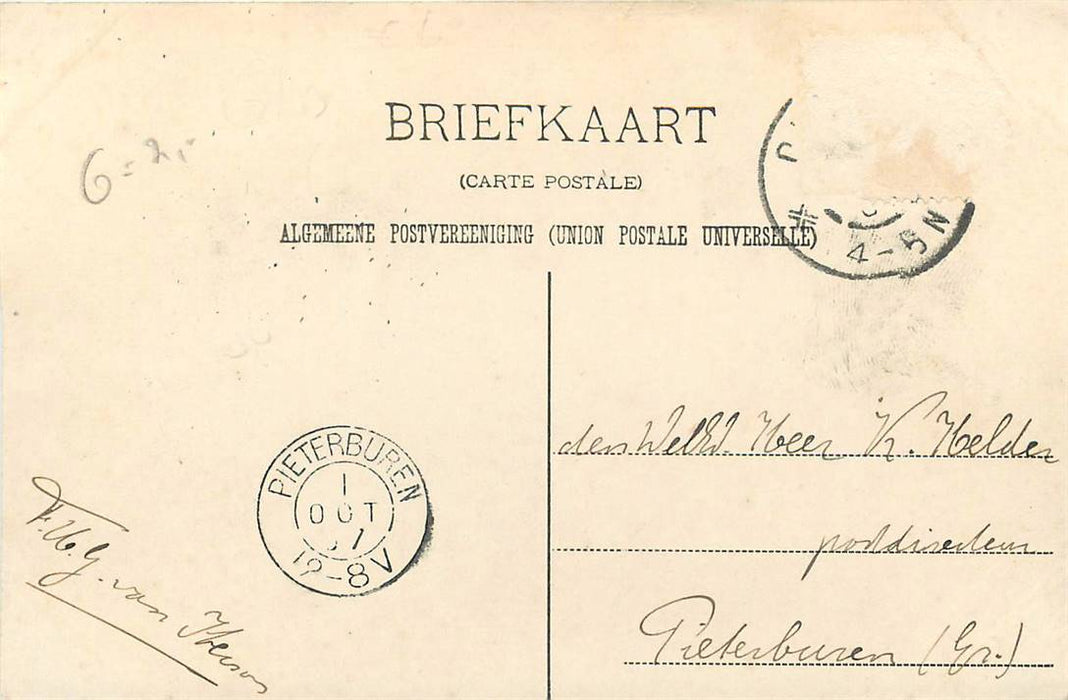 BRIEFKAART
(CARTE POSTALE)
ALGEMEENE POSTVEREENIGING (UNION POSTALE UNIVERSELLE)
6= 2,-
4-5 N
PIETERBUREN
1
OCT
12-8V
den WelEd. Heer K. Helder
postdirecteur
Pieterburen (Gr.)
van